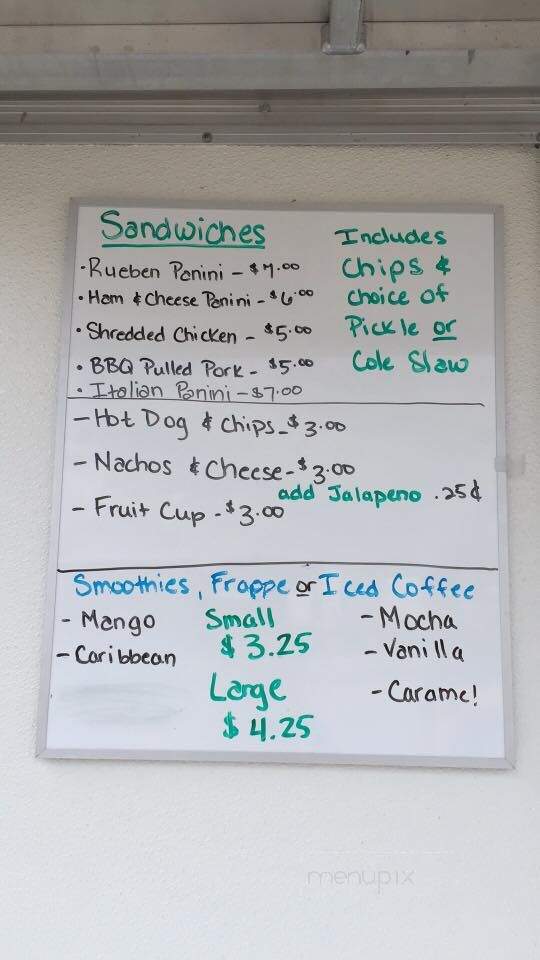 Sandwiches
· Rueben Panini - $7.00
· Ham & Cheese Panini - $6.00
· Shredded Chicken - $5.00
· BBQ Pulled Pork - $5.00
· Italian Panini - $7.00
Includes
Chips &
choice of
Pickle or
Cole Slaw
- Hot Dog & Chips - $3.00
- Nachos & Cheese - $3.00
add Jalapeno .25¢
- Fruit Cup - $3.00
Smoothies, Frappe or Iced Coffee
- Mango
- Caribbean
Small
$3.25
Large
$4.25
- Mocha
- Vanilla
- Caramel
menupix